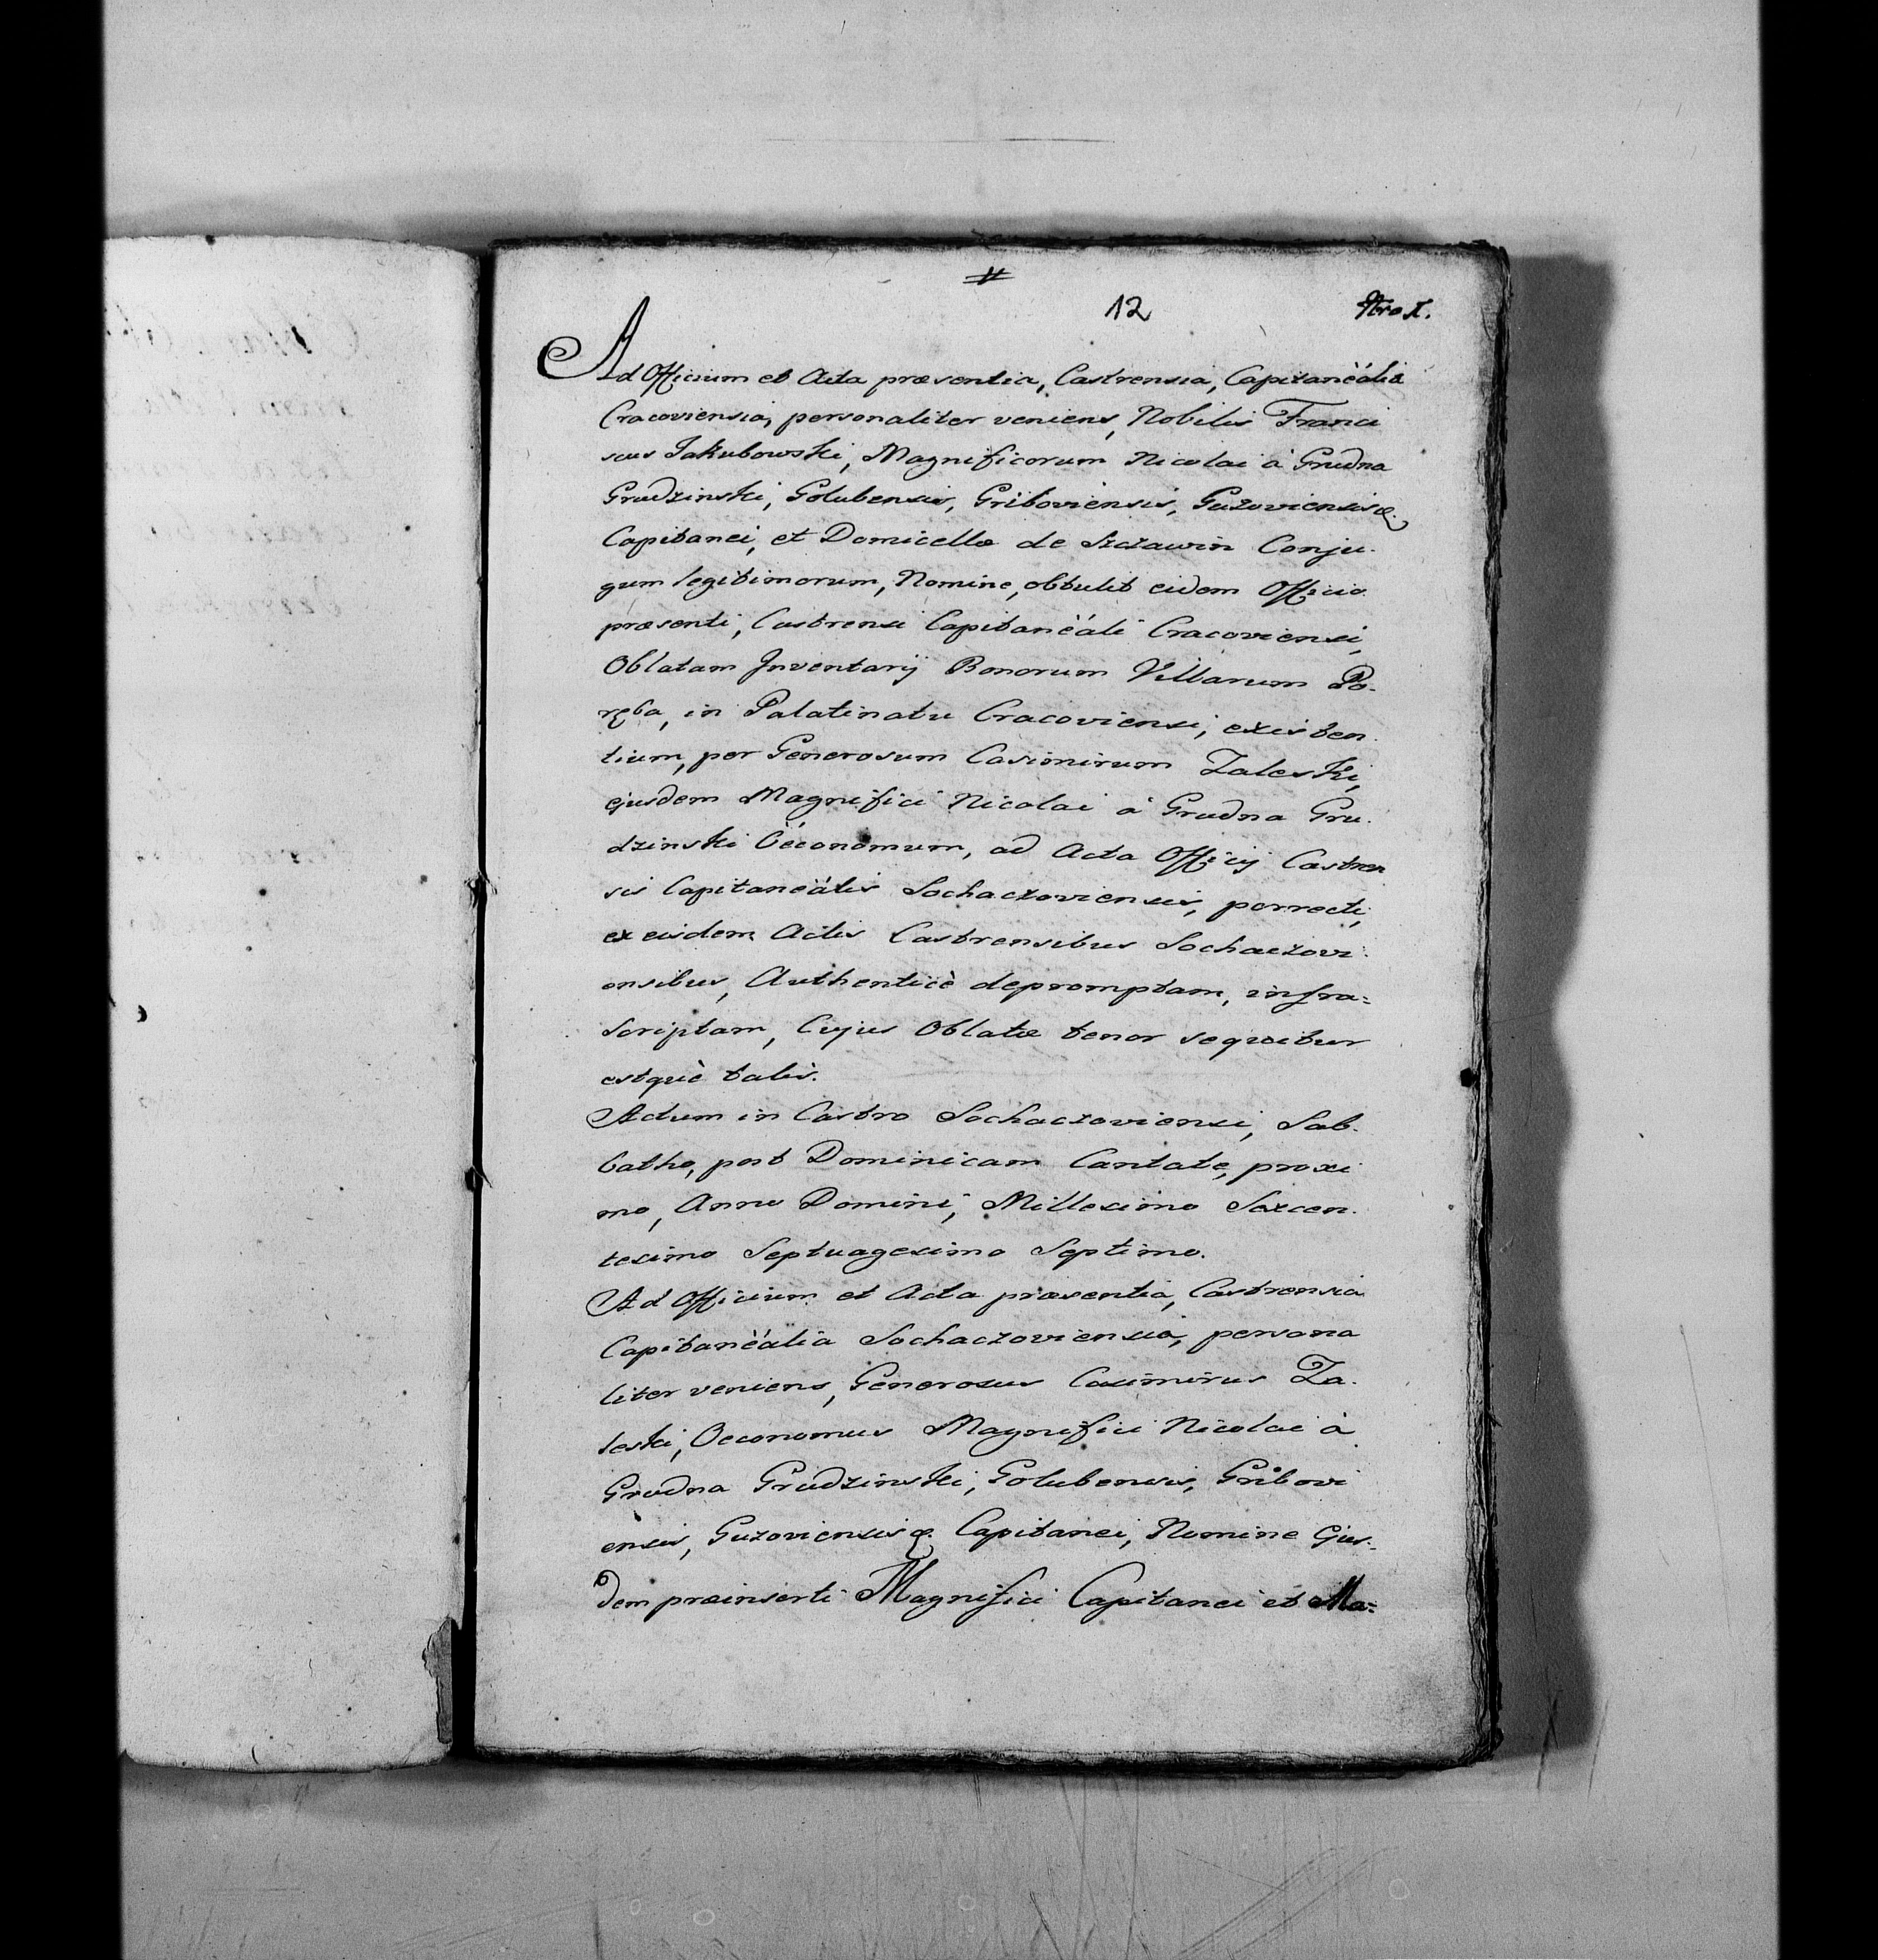 12
Nro I.
Ad Officium et Acta præsentia, Castrensia, Capitanëálià
Cracoviensia, personaliter veniens, Nobilis Franci
scus Jakubowski, Magnificorum Nicolai à Grudna
Grudzinski, Golubensis, Griboviensis, Guzoviensis &.
Capitanei, et Domicellæ de Szczawin Conju-
gum legitimorum, Nomine, obtulit eidem Officio
præsenti, Castrensi Capitanëáli Cracoviensi,
Oblatam Inventarij Bonorum Villarum Po-
ręba, in Palatinatu Cracoviensi, existen-
tium, per Generosum Casimirum Zaleski,
ejusdem Magnifici Nicolai à Grudna Gru-
dzinski Oëconomum, ad Acta Officij Castren
sis Capitaneális Sochaczoviensis, porrecti,
ex eisdem Actis Castrensibus Sochaczovi-
ensibus, Authenticè depromptam, infra=
scriptam, Cujus Oblatæ tenor sequitur
estquè talis.
Actum in Castro Sochaczoviensi, Sab-
batho, post Dominicam Cantate, proxi
mo, Anno Domini, Millesimo Sexcen-
tesimo Septuagesimo Septimo.
Ad Officium et Acta præsentia, Castrensia
Capitanëália Sochaczoviensia, persona
liter veniens, Generosus Casimirus Za-
leski, Oeconomus Magnifici Nicolai à
Grudna Grudzinski, Golubensis, Gribovi
ensis, Guzoviensis &. Capitanei, Nomine Ejus-
dem præinserti Magnifici Capitanei et Ma=